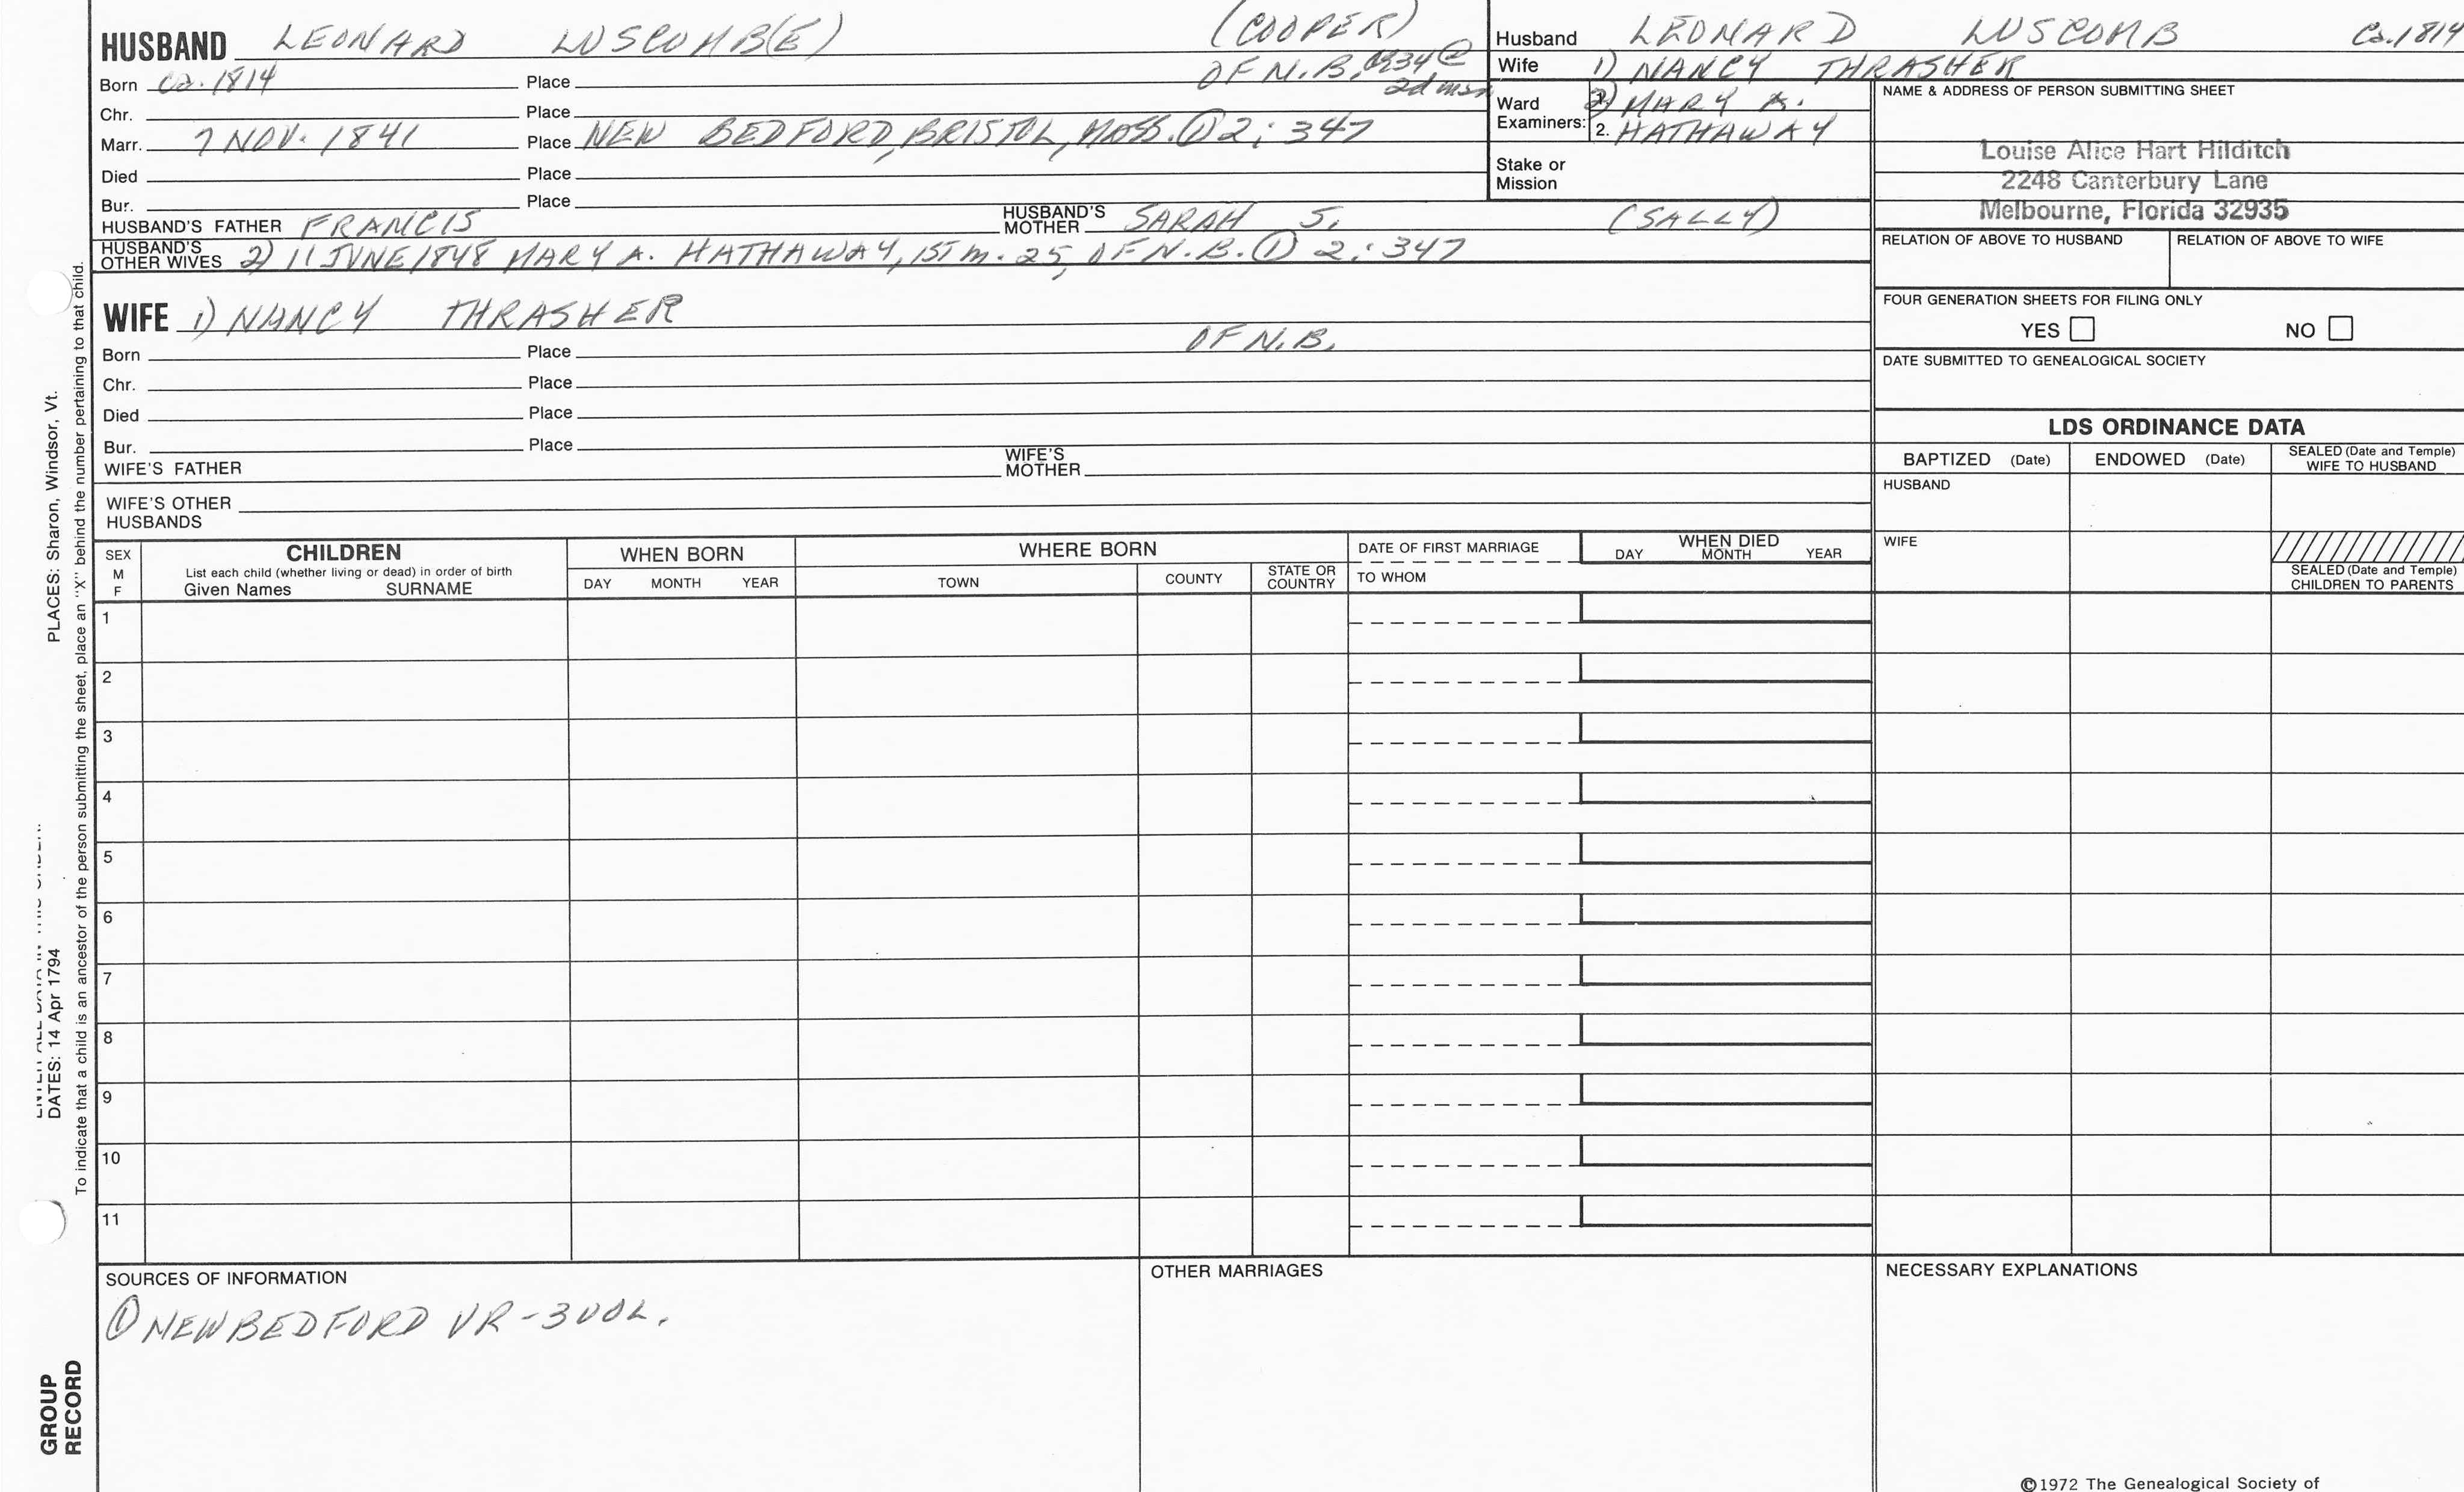 HUSBAND LEONARD LUSCOMB(E) (COOPER)
Born ca. 1814 Place OF N.B. 34 @ 2d
Chr. Place
Marr. 7 NOV. 1841 Place NEW BEDFORD, BRISTOL, MASS. ① 2: 347
Died Place
Bur. Place
HUSBAND'S FATHER FRANCIS HUSBAND'S MOTHER SARAH S. (SALLY)
HUSBAND'S OTHER WIVES 2) 11 JUNE 1848 MARY A. HATHAWAY, 1ST m. 25, OF N.B. ① 2: 347
Husband LEONARD LUSCOMB Ca. 1814
Wife 1) NANCY THRASHER
Ward Examiners: 1. 2) MARY A.
2. HATHAWAY
Stake or Mission
NAME & ADDRESS OF PERSON SUBMITTING SHEET
Louise Alice Hart Hilditch
2248 Canterbury Lane
Melbourne, Florida 32935
RELATION OF ABOVE TO HUSBAND RELATION OF ABOVE TO WIFE
FOUR GENERATION SHEETS FOR FILING ONLY
YES NO
DATE SUBMITTED TO GENEALOGICAL SOCIETY
WIFE 1) NANCY THRASHER
Born Place OF N.B.
Chr. Place
Died Place
Bur. Place
WIFE'S FATHER WIFE'S MOTHER
WIFE'S OTHER HUSBANDS
LDS ORDINANCE DATA
BAPTIZED (Date) ENDOWED (Date) SEALED (Date and Temple) WIFE TO HUSBAND
HUSBAND
WIFE
SEALED (Date and Temple) CHILDREN TO PARENTS
SEX M F
CHILDREN
List each child (whether living or dead) in order of birth
Given Names SURNAME
WHEN BORN
DAY MONTH YEAR
WHERE BORN
TOWN COUNTY STATE OR COUNTRY
DATE OF FIRST MARRIAGE
TO WHOM
WHEN DIED
DAY MONTH YEAR
1
2
3
4
5
6
7
8
9
10
11
SOURCES OF INFORMATION
① NEW BEDFORD VR - 3 VOL.
OTHER MARRIAGES
NECESSARY EXPLANATIONS
©1972 The Genealogical Society of
PLACES: Sharon, Windsor, Vt.
DATES: 14 Apr 1794
To indicate that a child is an ancestor of the person submitting the sheet, place an "X" behind the number pertaining to that child.
GROUP
RECORD